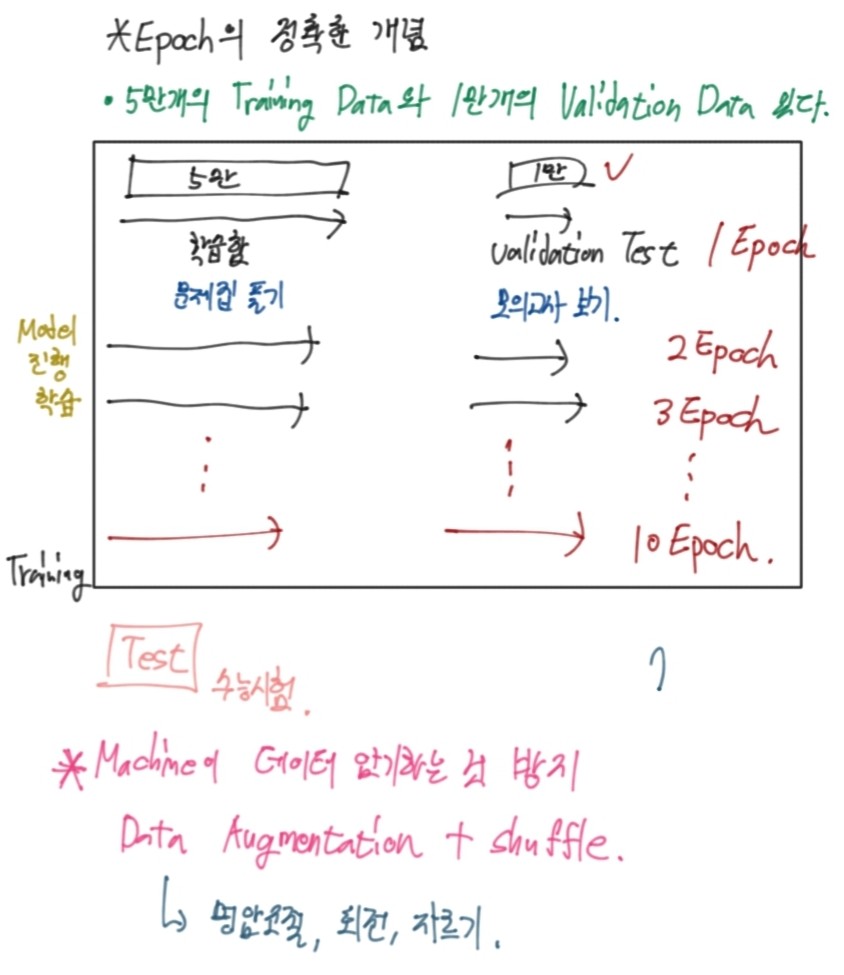 *Epoch의 정확한 개념
• 5만개의 Training Data와 1만개의 Validation Data 있다.
5만 1만 ✓
학습함 Validation Test 1 Epoch
문제집 풀기 모의고사 보기.
Model
진행
학습
2 Epoch
3 Epoch
10 Epoch.
Training
Test 수능시험.
*Machine이 데이터 암기하는 것 방지
Data Augmentation + shuffle.
↳ 명암조절, 회전, 자르기.